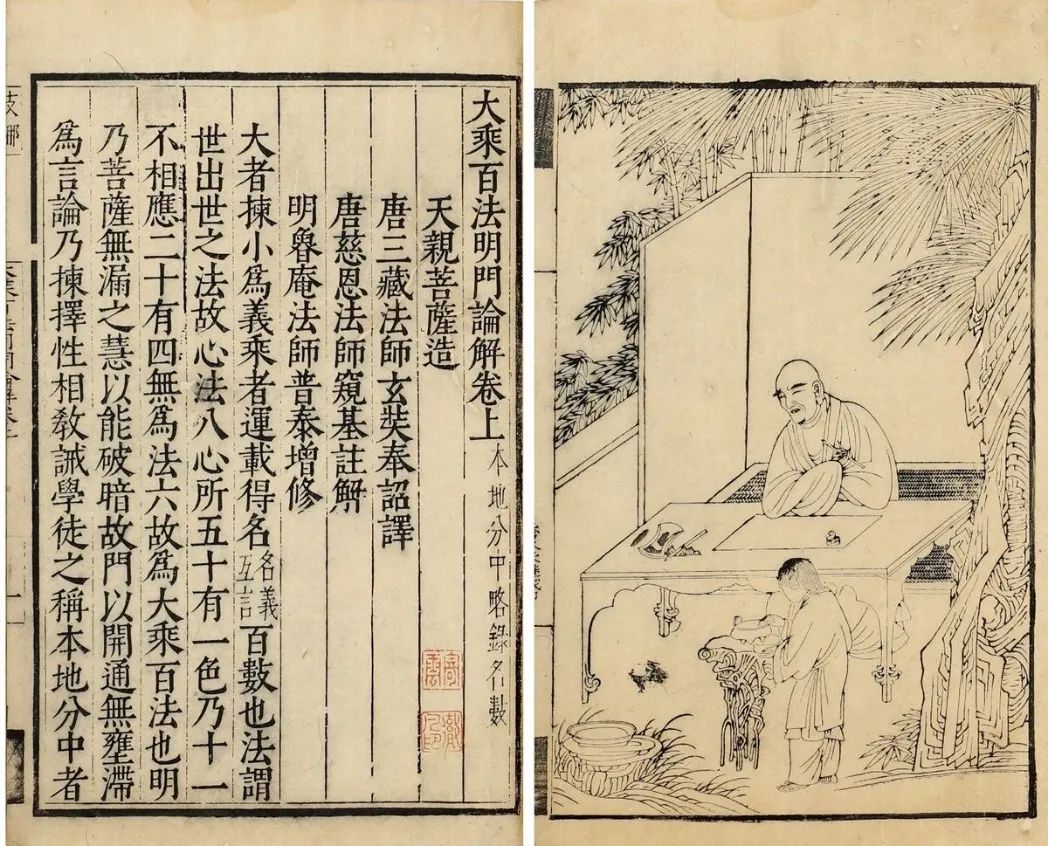 大乘百法明門論解卷上本地分中略錄名數
天親菩薩造
唐三藏法師玄奘奉詔譯
唐慈恩法師窺基註解
明魯庵法師普泰增修
大者揀小爲義乘者運載得名名義互言百數也法謂
世出世之法故心法八心所五十有一色乃十一
不相應二十有四無爲法六故爲大乘百法也明
乃菩薩無漏之慧以能破暗故門以開通無壅滯
爲言論乃揀擇性相教誡學徒之稱本地分中者